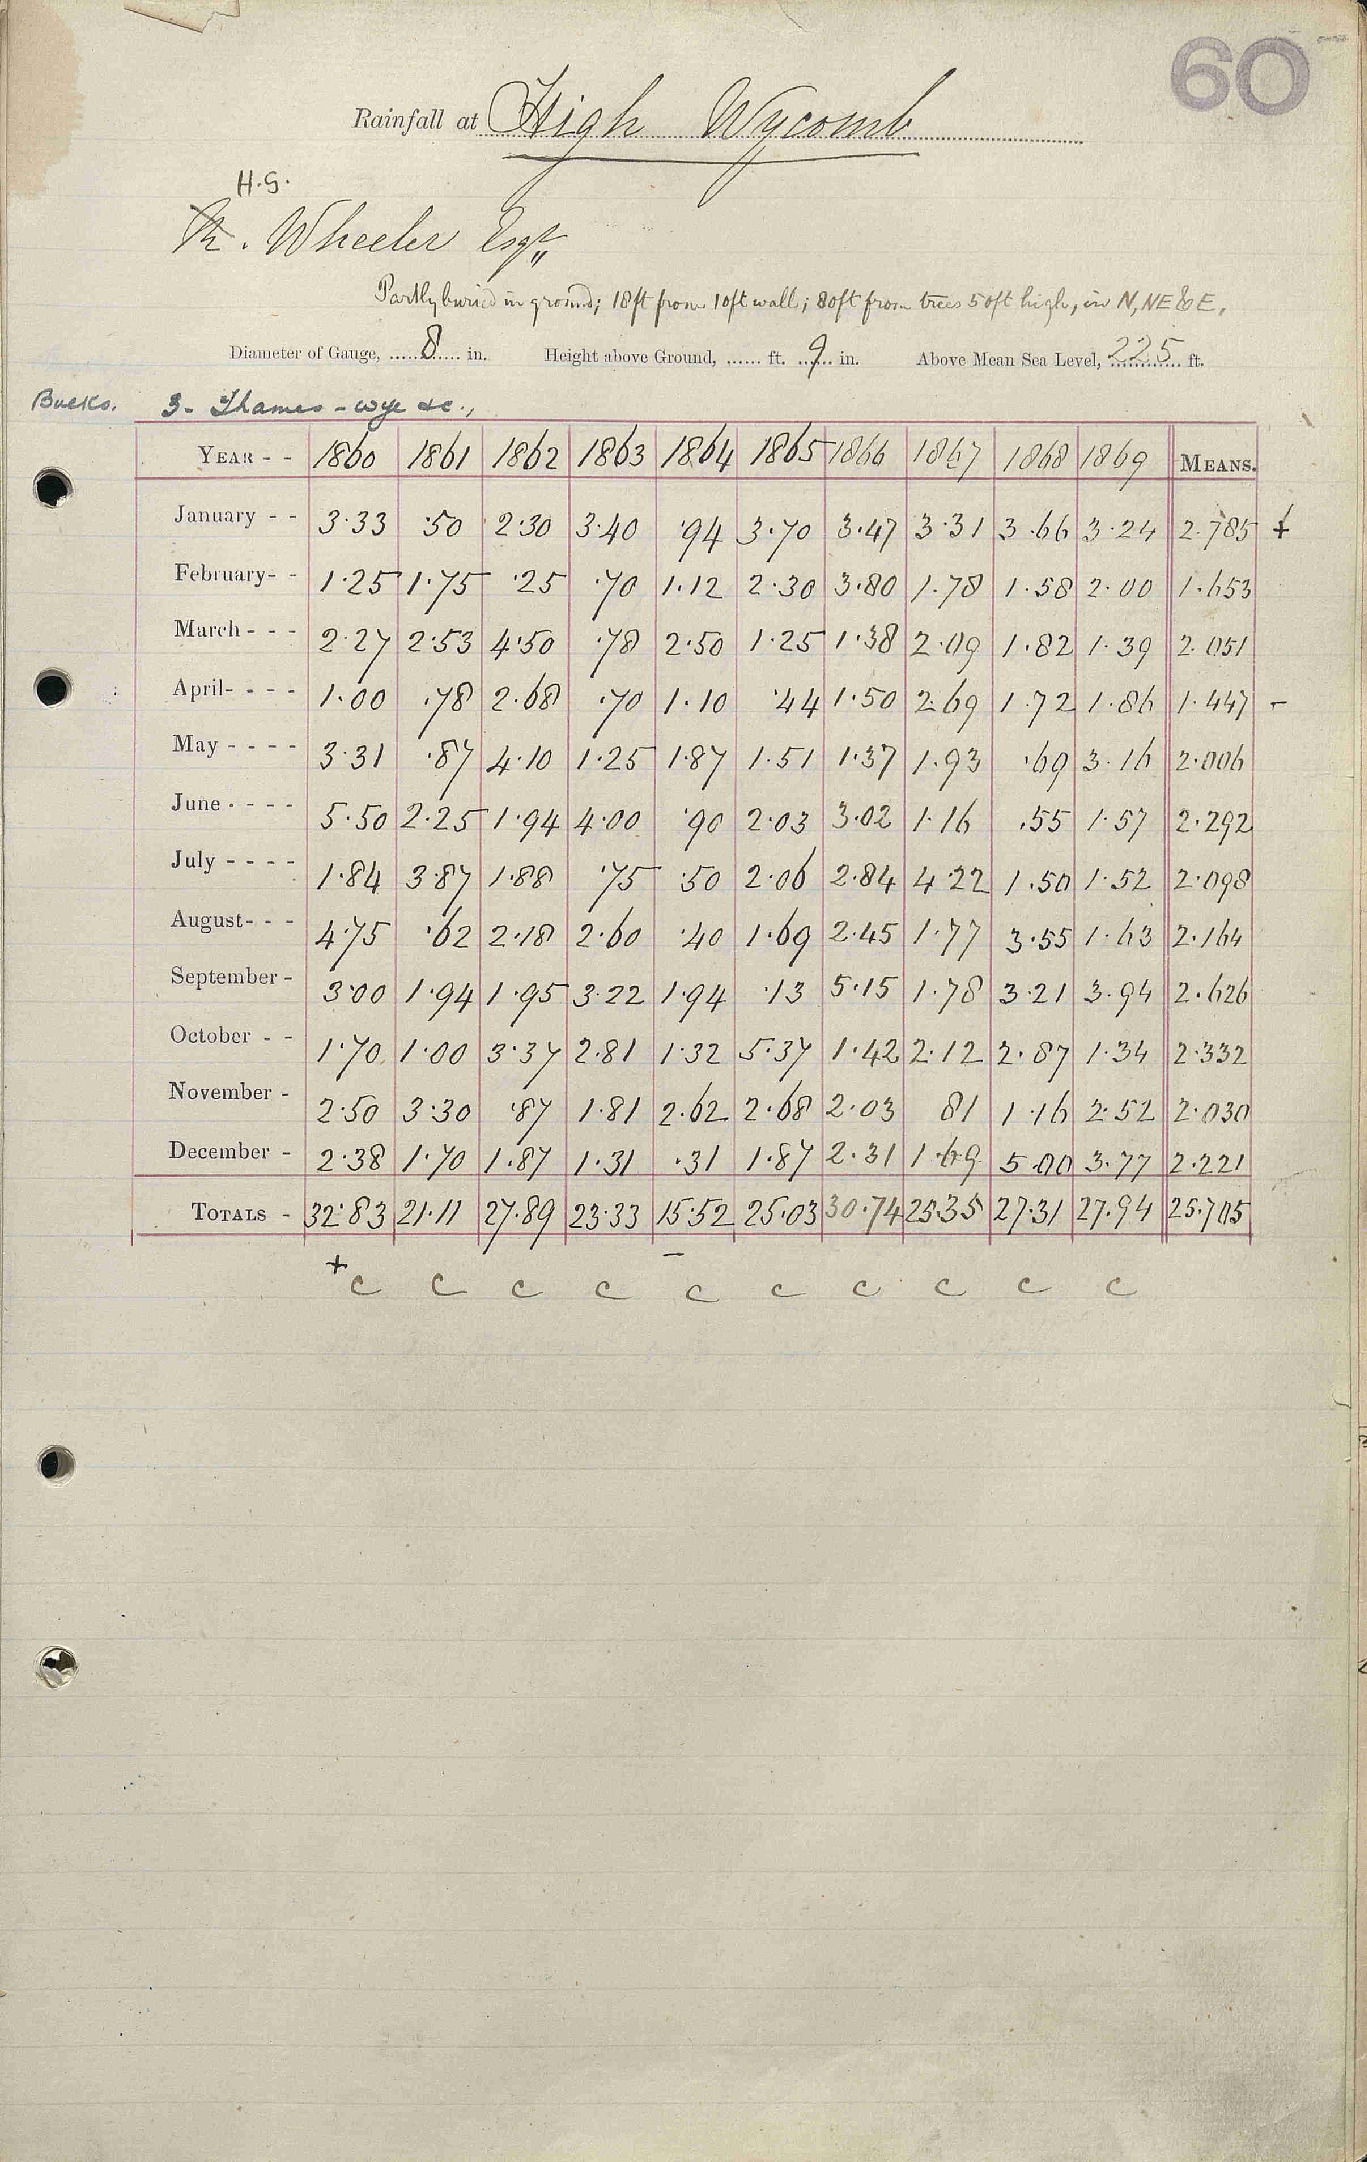 60
Rainfall at High Wycomb
H.G.
R. Wheeler Esqr
Partly buried in ground; 18ft from 10ft wall; 80ft from trees 50ft high, in N, NE & E.
Diameter of Gauge, 8 in. Height above Ground, ft. 9 in. Above Mean Sea Level, 225 ft.
Bucks. 3. Thames - Wye &c.,
YEAR - - 1860 1861 1862 1863 1864 1865 1866 1867 1868 1869 MEANS.
January - - 3.33 .50 2.30 3.40 .94 3.70 3.47 3.31 3.66 3.24 2.785 +
February- - 1.25 1.75 .25 .70 1.12 2.30 3.80 1.78 1.58 2.00 1.653
March - - - 2.27 2.53 4.50 .78 2.50 1.25 1.38 2.09 1.82 1.39 2.051
April- - - - 1.00 .78 2.68 .70 1.10 .44 1.50 2.69 1.72 1.86 1.447 -
May - - - - 3.31 .87 4.10 1.25 1.87 1.51 1.37 1.93 .69 3.16 2.006
June - - - - 5.50 2.25 1.94 4.00 .90 2.03 3.02 1.16 .55 1.57 2.292
July - - - - 1.84 3.87 1.88 .75 .50 2.06 2.84 4.22 1.50 1.52 2.098
August- - - 4.75 .62 2.18 2.60 .40 1.69 2.45 1.77 3.55 1.63 2.164
September - 3.00 1.94 1.95 3.22 1.94 .13 5.15 1.78 3.21 3.94 2.626
October - - 1.70 1.00 3.37 2.81 1.32 5.37 1.42 2.12 2.87 1.34 2.332
November - 2.50 3.30 .87 1.81 2.62 2.68 2.03 81 1.16 2.52 2.030
December - 2.38 1.70 1.87 1.31 .31 1.87 2.31 1.69 5.00 3.77 2.221
TOTALS - 32.83 21.11 27.89 23.33 15.52 25.03 30.74 25.35 27.31 27.94 25.705
+ -
c c c c c c c c c c